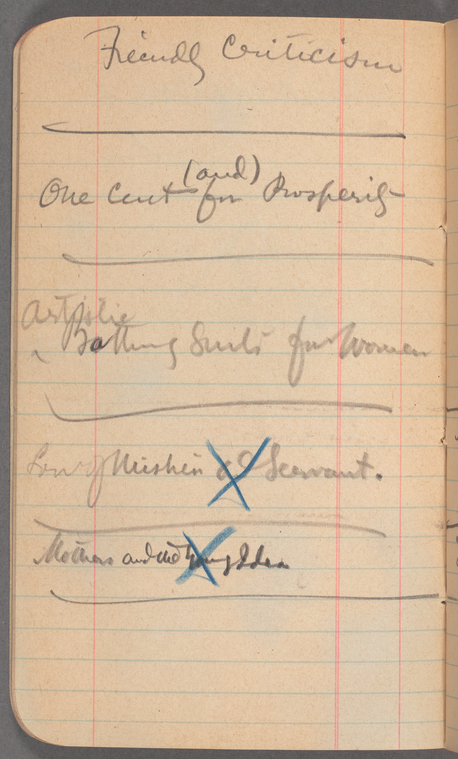 Friendly Criticism
(and)
One Cent for Prosperity
Artistic
Bathing Suits for Women
Mishin Servant.
Mothers and the Young Idea